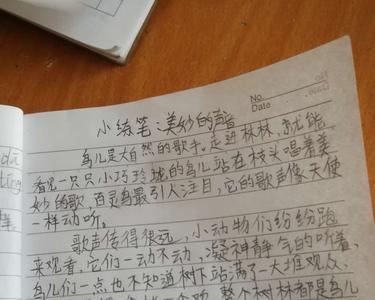 No.
Date
小练笔:美妙的声音
鸟儿是大自然的歌手。走进林林,就能
看见一只只小巧玲珑的鸟儿站在枝头唱着美
妙的歌,百灵鸟最引人注目,它的歌声像天使
一样动听。
歌声传得很远,小动物们纷纷跑
来观看,它们一动不动,凝神静气的听着,
鸟儿们一点也不知道树下站满了大堆观众,
整个树林都是鸟儿